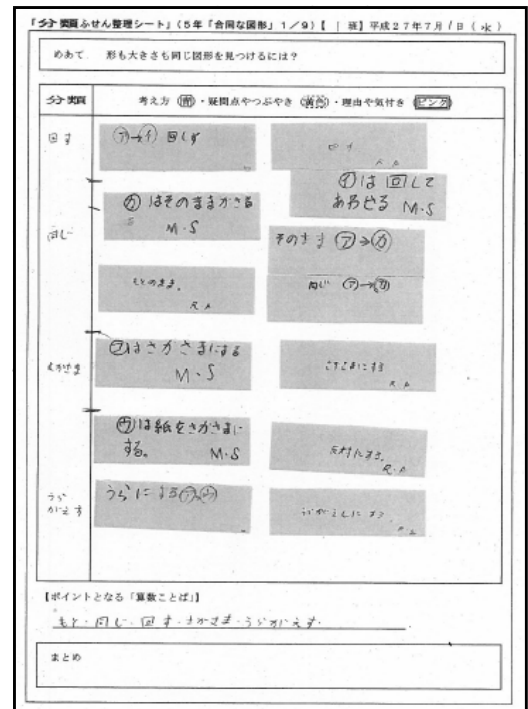 「分類ふせん整理シート」(5年「合同な図形」1/9)【1班】平成27年7月1日(水)
めあて 形も大きさも同じ図形を見つけるには?
分類
考え方(青)・疑問点やつぶやき(黄色)・理由や気付き(ピンク)
回す
㋐→㋑ 回しす
R A
㋑は回して
あわせる M・S
同じ
㋕はそのままかさる
M・S
そのまま ㋐→㋕
もとのまま。
R A
同じ ㋐→㋕
さかさま
はさかさまになる
M・S
さかさまにする
R A
㋒は紙をさかさまに
する。 M・S
反対にする。
R.A
うら
がえす
うらになる㋐㋒
うらがえしにする。
R A
【ポイントとなる「算数ことば」】
もと・同じ・回す・さかさま・うらがえす・
まとめ